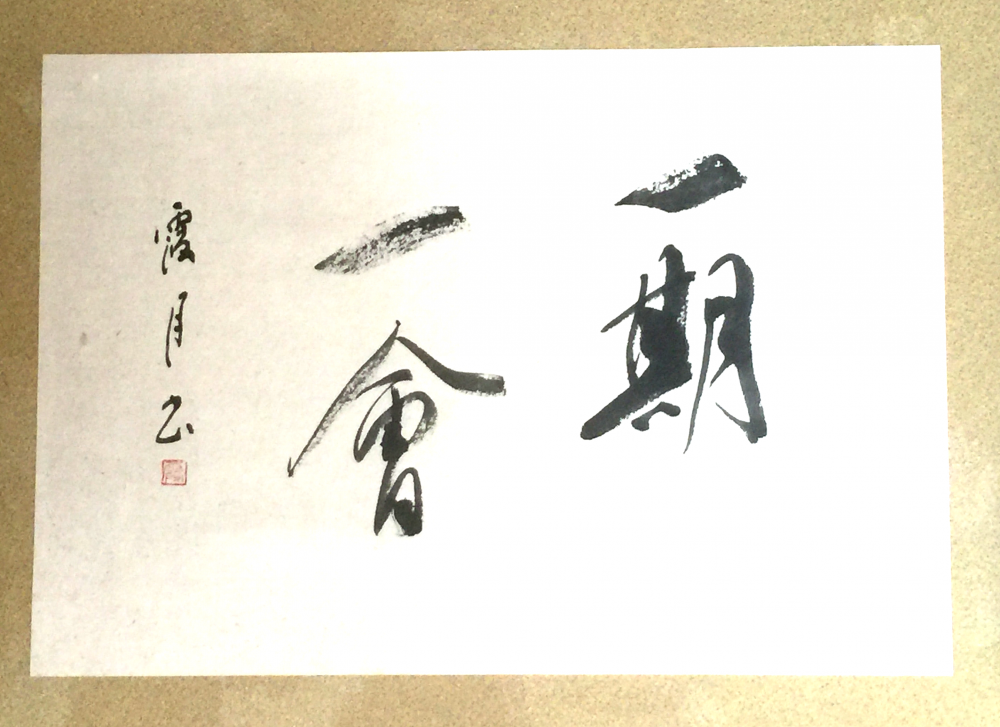 一期
一會
霞月書